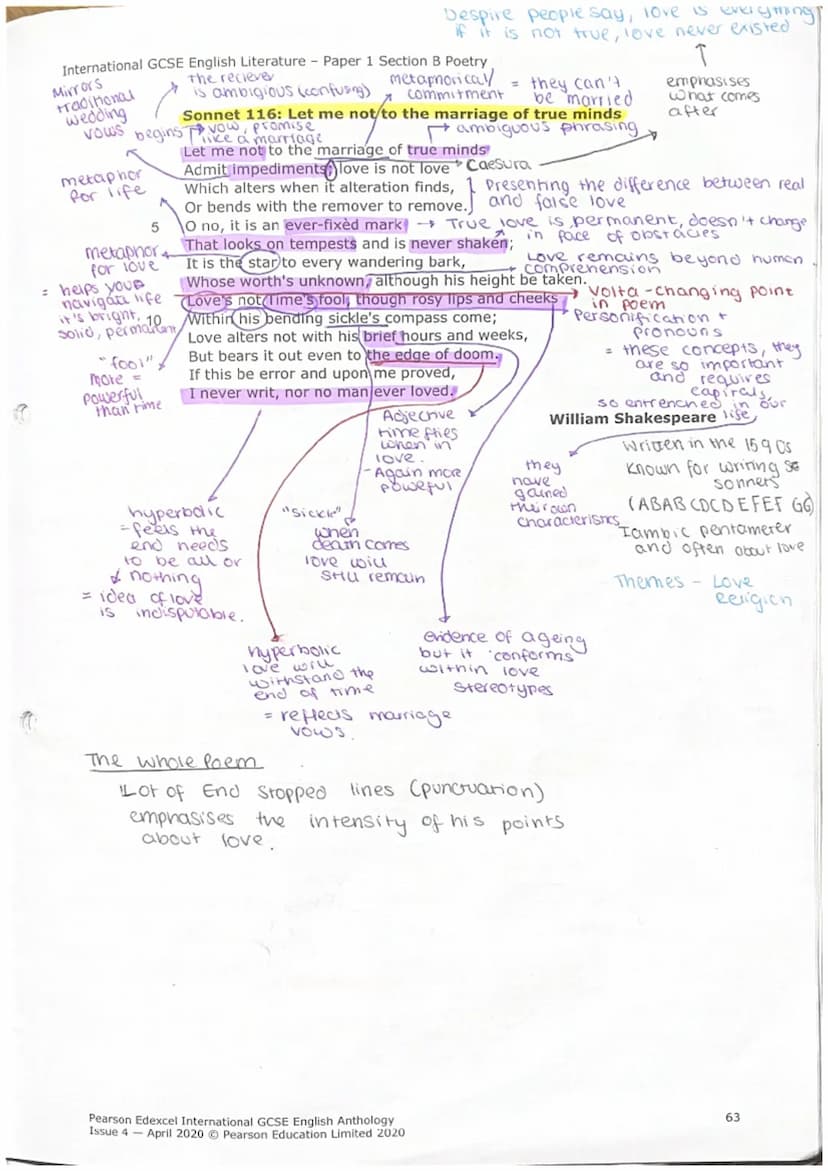 Despire people say, love is everything
if it is not true, love never existed
International GCSE English Literature – Paper 1 Section B Poetry
Mirrors
traditional
wedding
vows begins
the reciever
is ambigious (confusing)
metaphorical
commitment
= they can't
be married
emphasises
what comes
after
Sonnet 116: Let me not to the marriage of true minds
vow, promise
like a marriage
ambiguous phrasing
Let me not to the marriage of true minds
Admit impediments; love is not love
Caesura
metaphor
for life
Which alters when it alteration finds,
Or bends with the remover to remove.
Presenting the difference between real
and false love
5 O no, it is an ever-fixèd mark
True love is permanent, doesn't change
in face of obstacles
That looks on tempests and is never shaken;
metaphor
for love
It is the star to every wandering bark,
Love remains beyond human
comprehension
Whose worth's unknown, although his height be taken.
= helps you
navigate life
it's bright,
solid, permanent
Love's not Time's fool, though rosy lips and cheeks
Volta - changing point
in poem
10 Within his bending sickle's compass come;
Personification +
pronouns
= these concepts, they
are so important
and requires
capitals
so entrenched in our
life
Love alters not with his brief hours and weeks,
But bears it out even to the edge of doom.
"fool"
more =
powerful
than time
If this be error and upon me proved,
I never writ, nor no man ever loved.
William Shakespeare
Adjective
time flies
when in
love.
- Again more
powerful
they
have
gained
their own
characteristics
Written in the 1590s
Known for writing
sonnets
(ABAB CDCD EFEF GG)
Iambic pentameter
and often about love
Themes - Love
Religion
hyperbolic
= feels the
end needs
to be all or
nothing
= idea of love
is indisputable.
"sickle"
when
death comes
love will
still remain
hyperbolic
love will
withstand the
end of time
= reflects marriage
vows.
evidence of ageing
but it 'conforms'
within love
stereotypes
The whole Poem
Lot of End Stopped lines (punctuation)
emphasises the intensity of his points
about love.
Pearson Edexcel International GCSE English Anthology
Issue 4 — April 2020 © Pearson Education Limited 2020
63